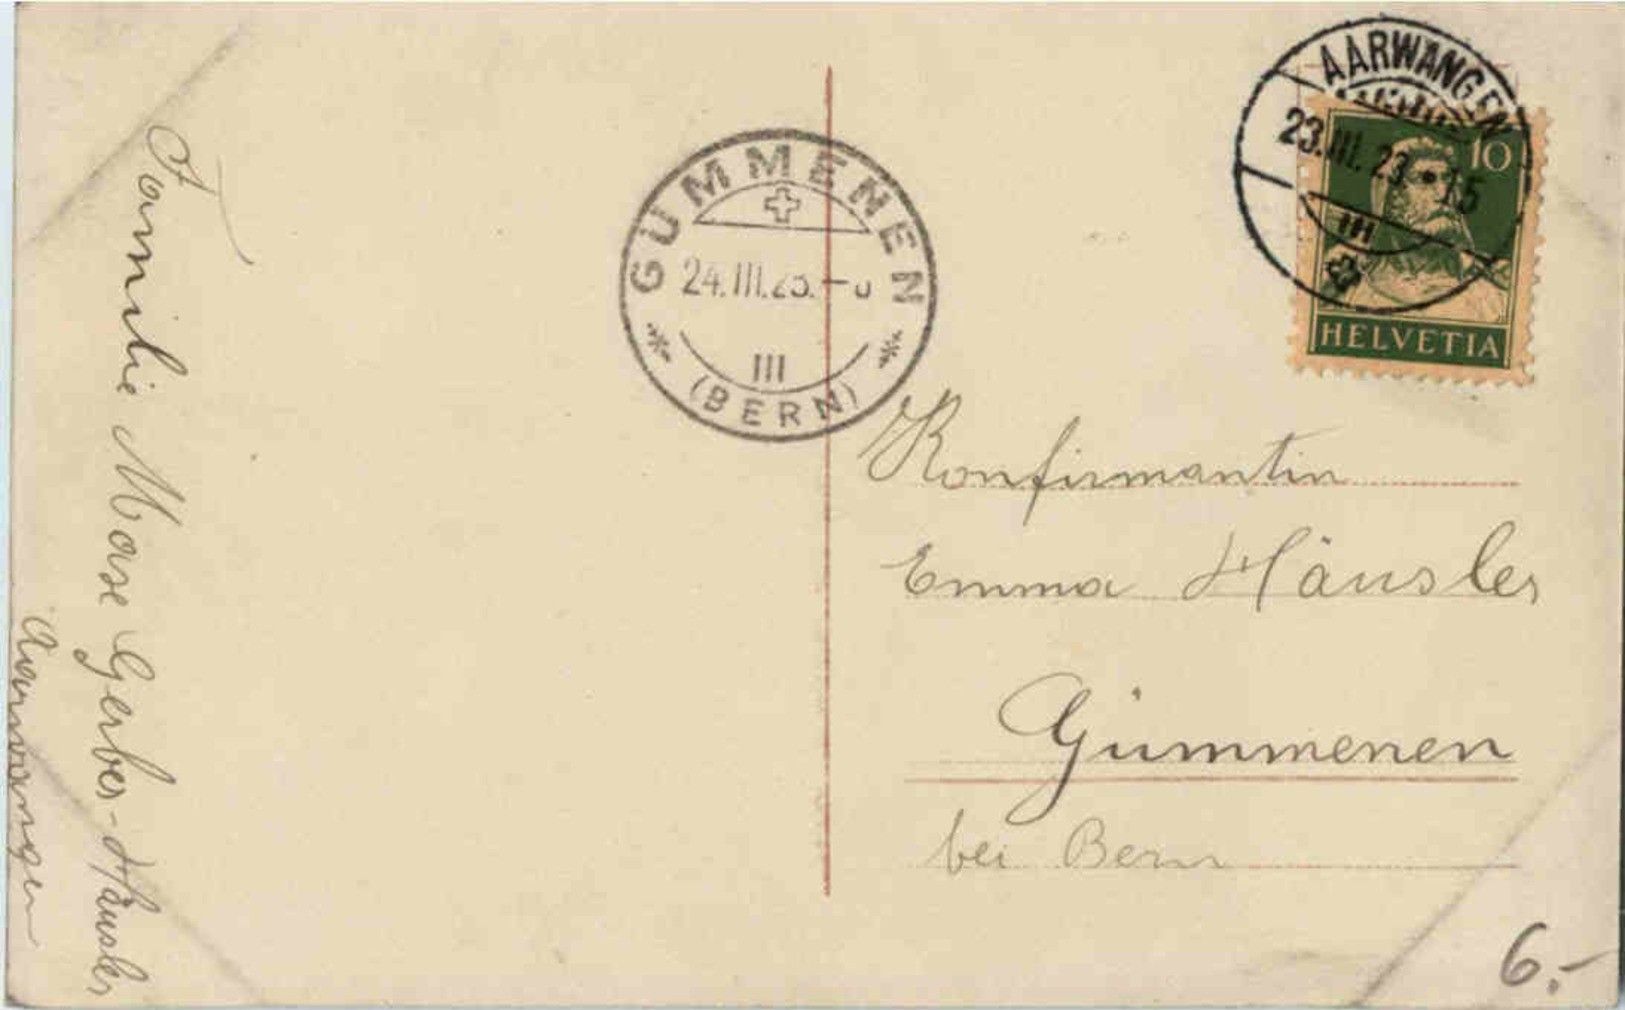 Familie Mose Gerber-Häusler
Aarwangen
GÜMMENEN
24.III.23.
III
(BERN)
AARWANGEN
23.III.23 15
III
10
HELVETIA
Konfirmantin
Emma Häusler
Gümmenen
bei Bern
6.-